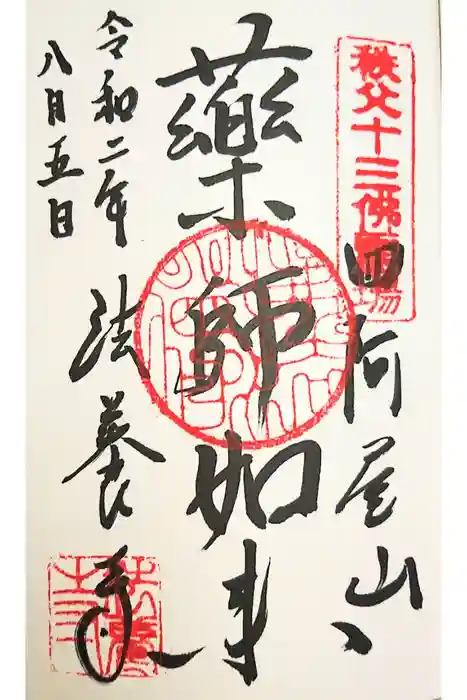 秩父十三佛霊場
四阿屋山
藥師如来
令和二年
八月五日
法養寺